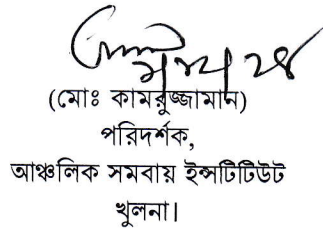 (মোঃ কামরুজ্জামান)
পরিদর্শক,
আঞ্চলিক সমবায় ইন্সটিটিউট
খুলনা।